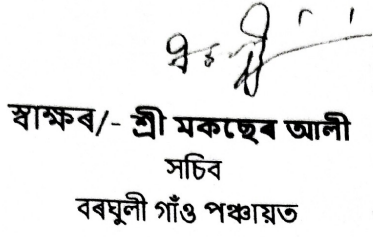 স্বাক্ষৰ/- শ্ৰী মকছেৰ আলী
সচিব
বৰঘুলী গাঁও পঞ্চায়ত